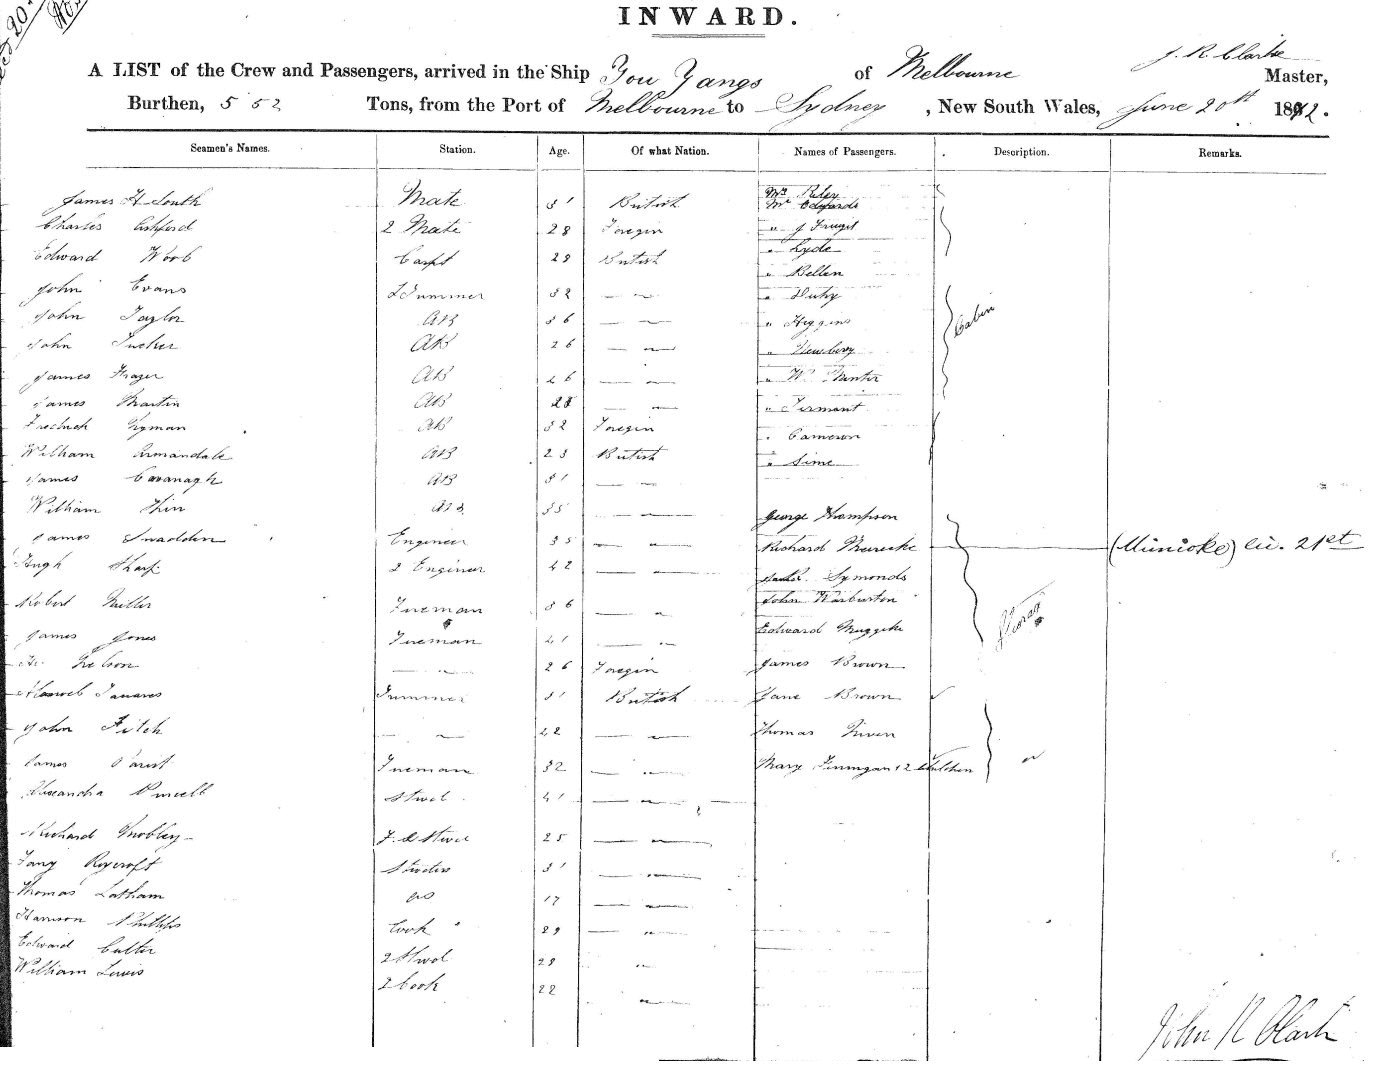 INWARD.
J. R. Clarke
A LIST of the Crew and Passengers, arrived in the Ship You Yangs of Melbourne Master,
Burthen, 552 Tons, from the Port of Melbourne to Sydney, New South Wales, June 20th 1892.
Seamen's Names. Station. Age. Of what Nation. Names of Passengers. Description. Remarks.
James H South Mate 31 British Mrs Riley
Mr Edwards
Charles Ashford 2 Mate 28 Foregin " J
Edward Carpt 28 British " Lyde
" Bellen
John Evans 32 "
John Taylor AB 36 " Higgins
John Tucker AB 26 " Newbery
James Frazer AB 26 " W. Hunter
James Martin AB 28 "
Fredrick Lyman AB 32 Foregin " Cameron
William Armandale AB 23 British " Sime
James Cavanagh AB 31
William Thin AB 35 George Thompson
James Snadden Engineer 35 Richard Muricke (Minicke) lic. 21st
Hugh Sharp 2 Engineer 42 Symonds
Robert Miller Fireman 36 John Warburton
Edward Muggeke
James Jones Fireman 41
Nelson 26 Foregin James Brown
Tavares 31 British Jane Brown
John Fitch 42 Thomas Niven
James Fireman 32 Mary Finnigan & 2 Children
Cabin
Alexandra Purcell Stwd 41
Richard Knobley F. & Stwd 25
Fany Roycroft 31
Thomas Latham 17
Harrison Phillips Cook 29
Edward Cutter 2 Stwd 28
William Lewis 2 Cook 22
John R Clark